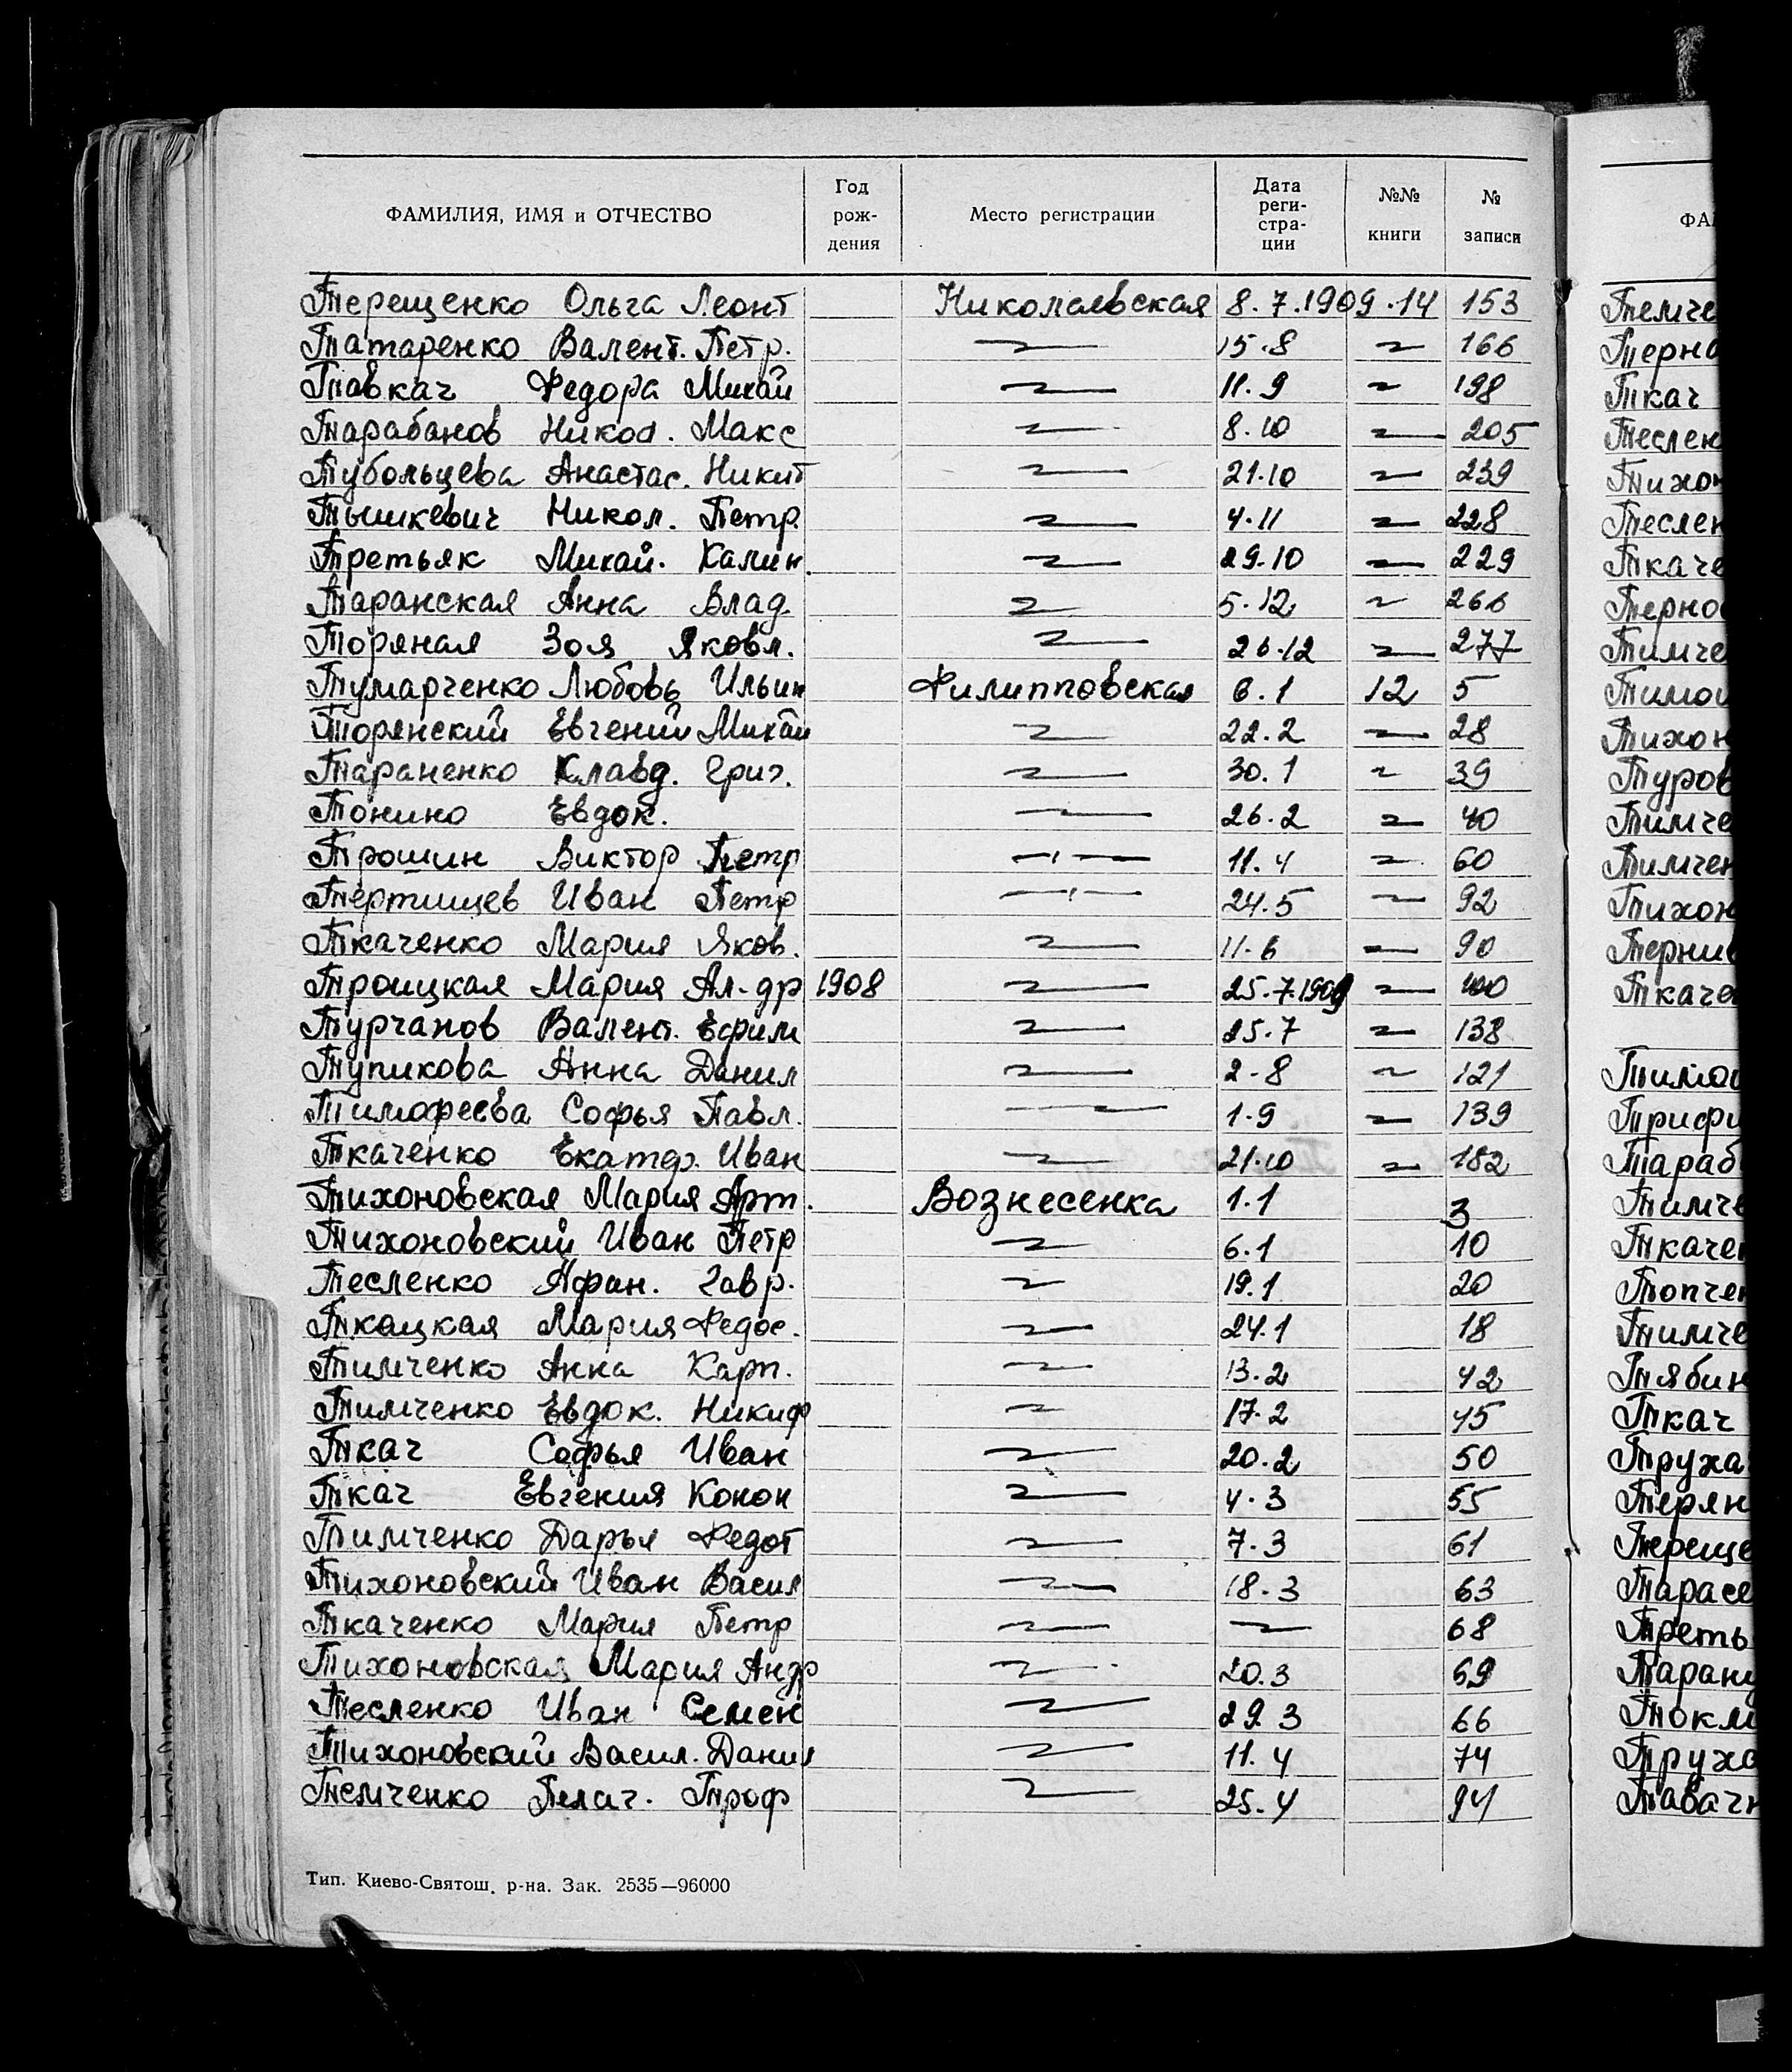 ФАМИЛИЯ, ИМЯ и ОТЧЕСТВО Год рож- дения Место регистрации Дата реги- стра- ции №№ книги № записи
Терещенко Ольга Леонт Николаевская 8.7.1909. 14 153
Татаренко Валент. Петр. 15.8 166
Тавкач Федора Михай 11.9 198
Тарабанов Никол. Макс 8.10 205
Тубольцева Анастас. Никит 21.10 239
Тышкевич Никол. Петр. 4.11 228
Третьяк Михай. Калин. 29.10 229
Таранская Анна Влад 5.12 266
Торяная Зоя Яковл. 26.12 277
Тумарченко Любовь Ильин Филипповская 6.1 12 5
Торянский Евгений Михай 22.2 28
Тараненко Клавд. Григ. 30.1 39
Тонино Евдок. 26.2 40
Трошин Виктор Петр 11.4 60
Тертищев Иван Петр 24.5 92
Ткаченко Мария Яков. 11.6 90
Троицкая Мария Ал-др 1908 25.7.1909 100
Турчанов Валент. Ефим 25.7 138
Тупикова Анна Данил 2.8 121
Тимофеева Софья Павл. 1.9 139
Ткаченко Екатер. Иван 21.10 182
Тихоновская Мария Арт. Вознесенка 1.1 3
Тихоновский Иван Петр 6.1 10
Тесленко Афан. Гавр. 19.1 20
Ткацкая Мария Федос. 24.1 18
Тимченко Анна Карп. 13.2 42
Тимченко Евдок. Никиф 17.2 45
Ткач Софья Иван 20.2 50
Ткач Евгения Конон 4.3 55
Тимченко Дарья Федот 7.3 61
Тихоновский Иван Васил 18.3 63
Ткаченко Мария Петр 68
Тихоновская Мария Андр 20.3 69
Тесленко Иван Семен 29.3 66
Тихоновский Васил. Данил 11.4 74
Темченко Пелаг. Троф 25.4 94
Тип. Киево-Святош. р-на. Зак. 2535—96000
ФА
Темче
Терно
Ткач
Теслен
Тихон
Теслен
Ткаче
Терно
Тимче
Тимо
Тихон
Туров
Тимче
Тимчен
Тихон
Ткаче
Тимо
Триф
Тараб
Тимче
Ткачен
Топчен
Тимче
Тябин
Ткач
Труха
Терян
Тереще
Тарасе
Треть
Таран
Токм
Трухо
Тавач